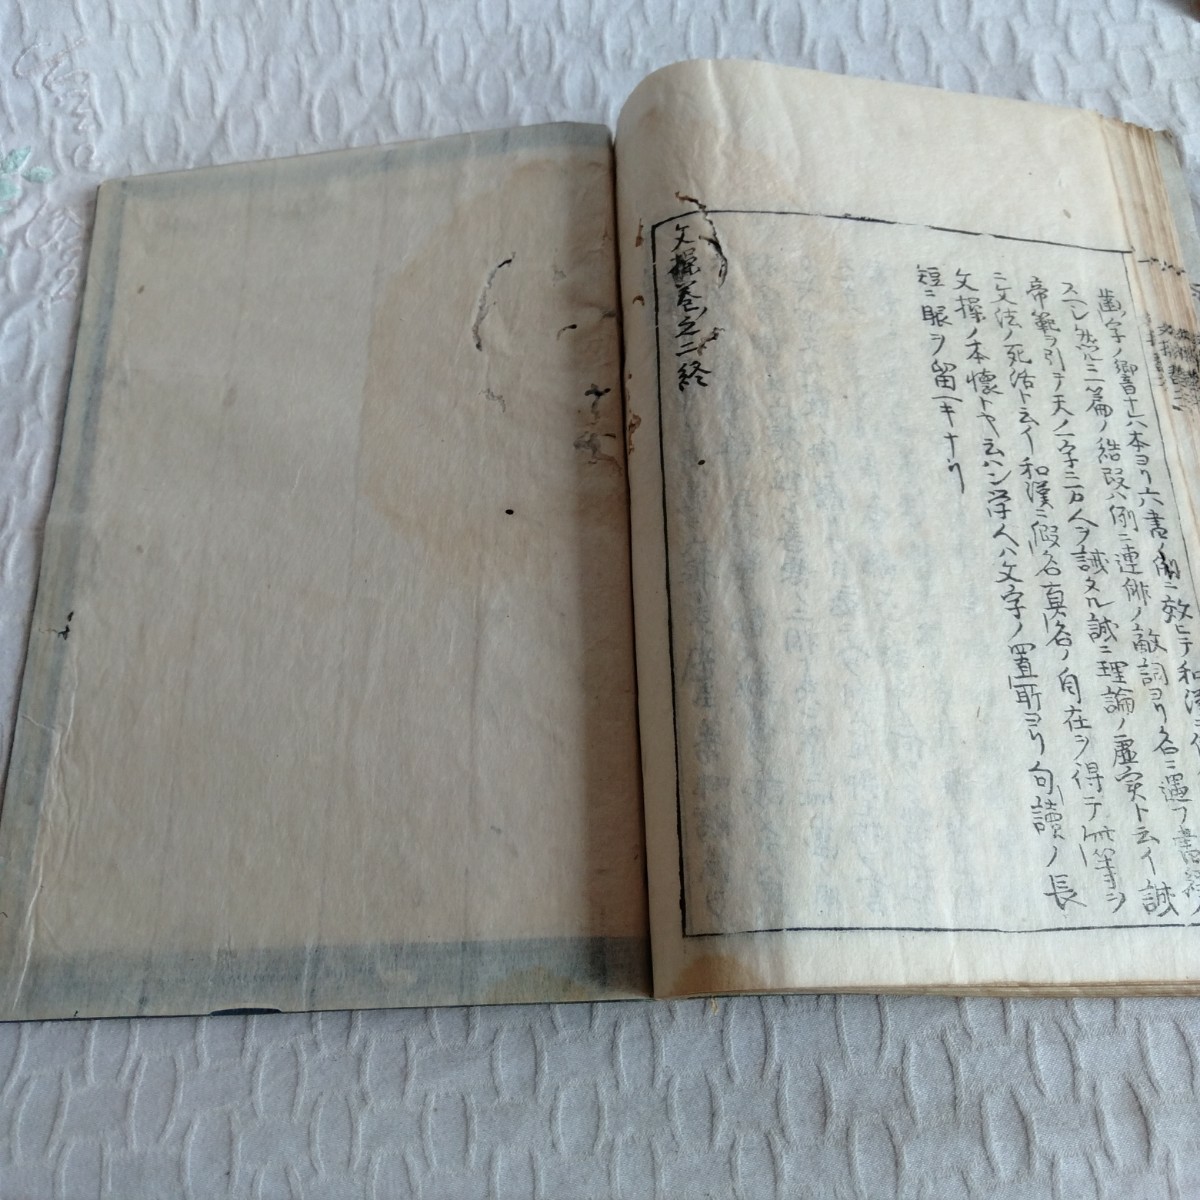 歯ノ字ノ響ナ六本ヨリ六書ノ例ニ效ヒテ和漢
スヘシ然ルニ二篇ノ結段ハ例ニ連俳ノ敵詞ヨリ名ニ遇フ書経ノ
帝範ヲ引テ天ノ一字ニ万人ヲ誡タル誠ニ理論ノ虚実ト云イ誠
ニ文法ノ死活ト云イ和漢ニ假名真名ノ自在ヲ得テ此等ヲ
文操ノ本懐トヤ云ハン学人ハ文字ノ置所ヨリ句讀ノ長
短ニ眼ヲ留ヘキナリ
文操巻之二終